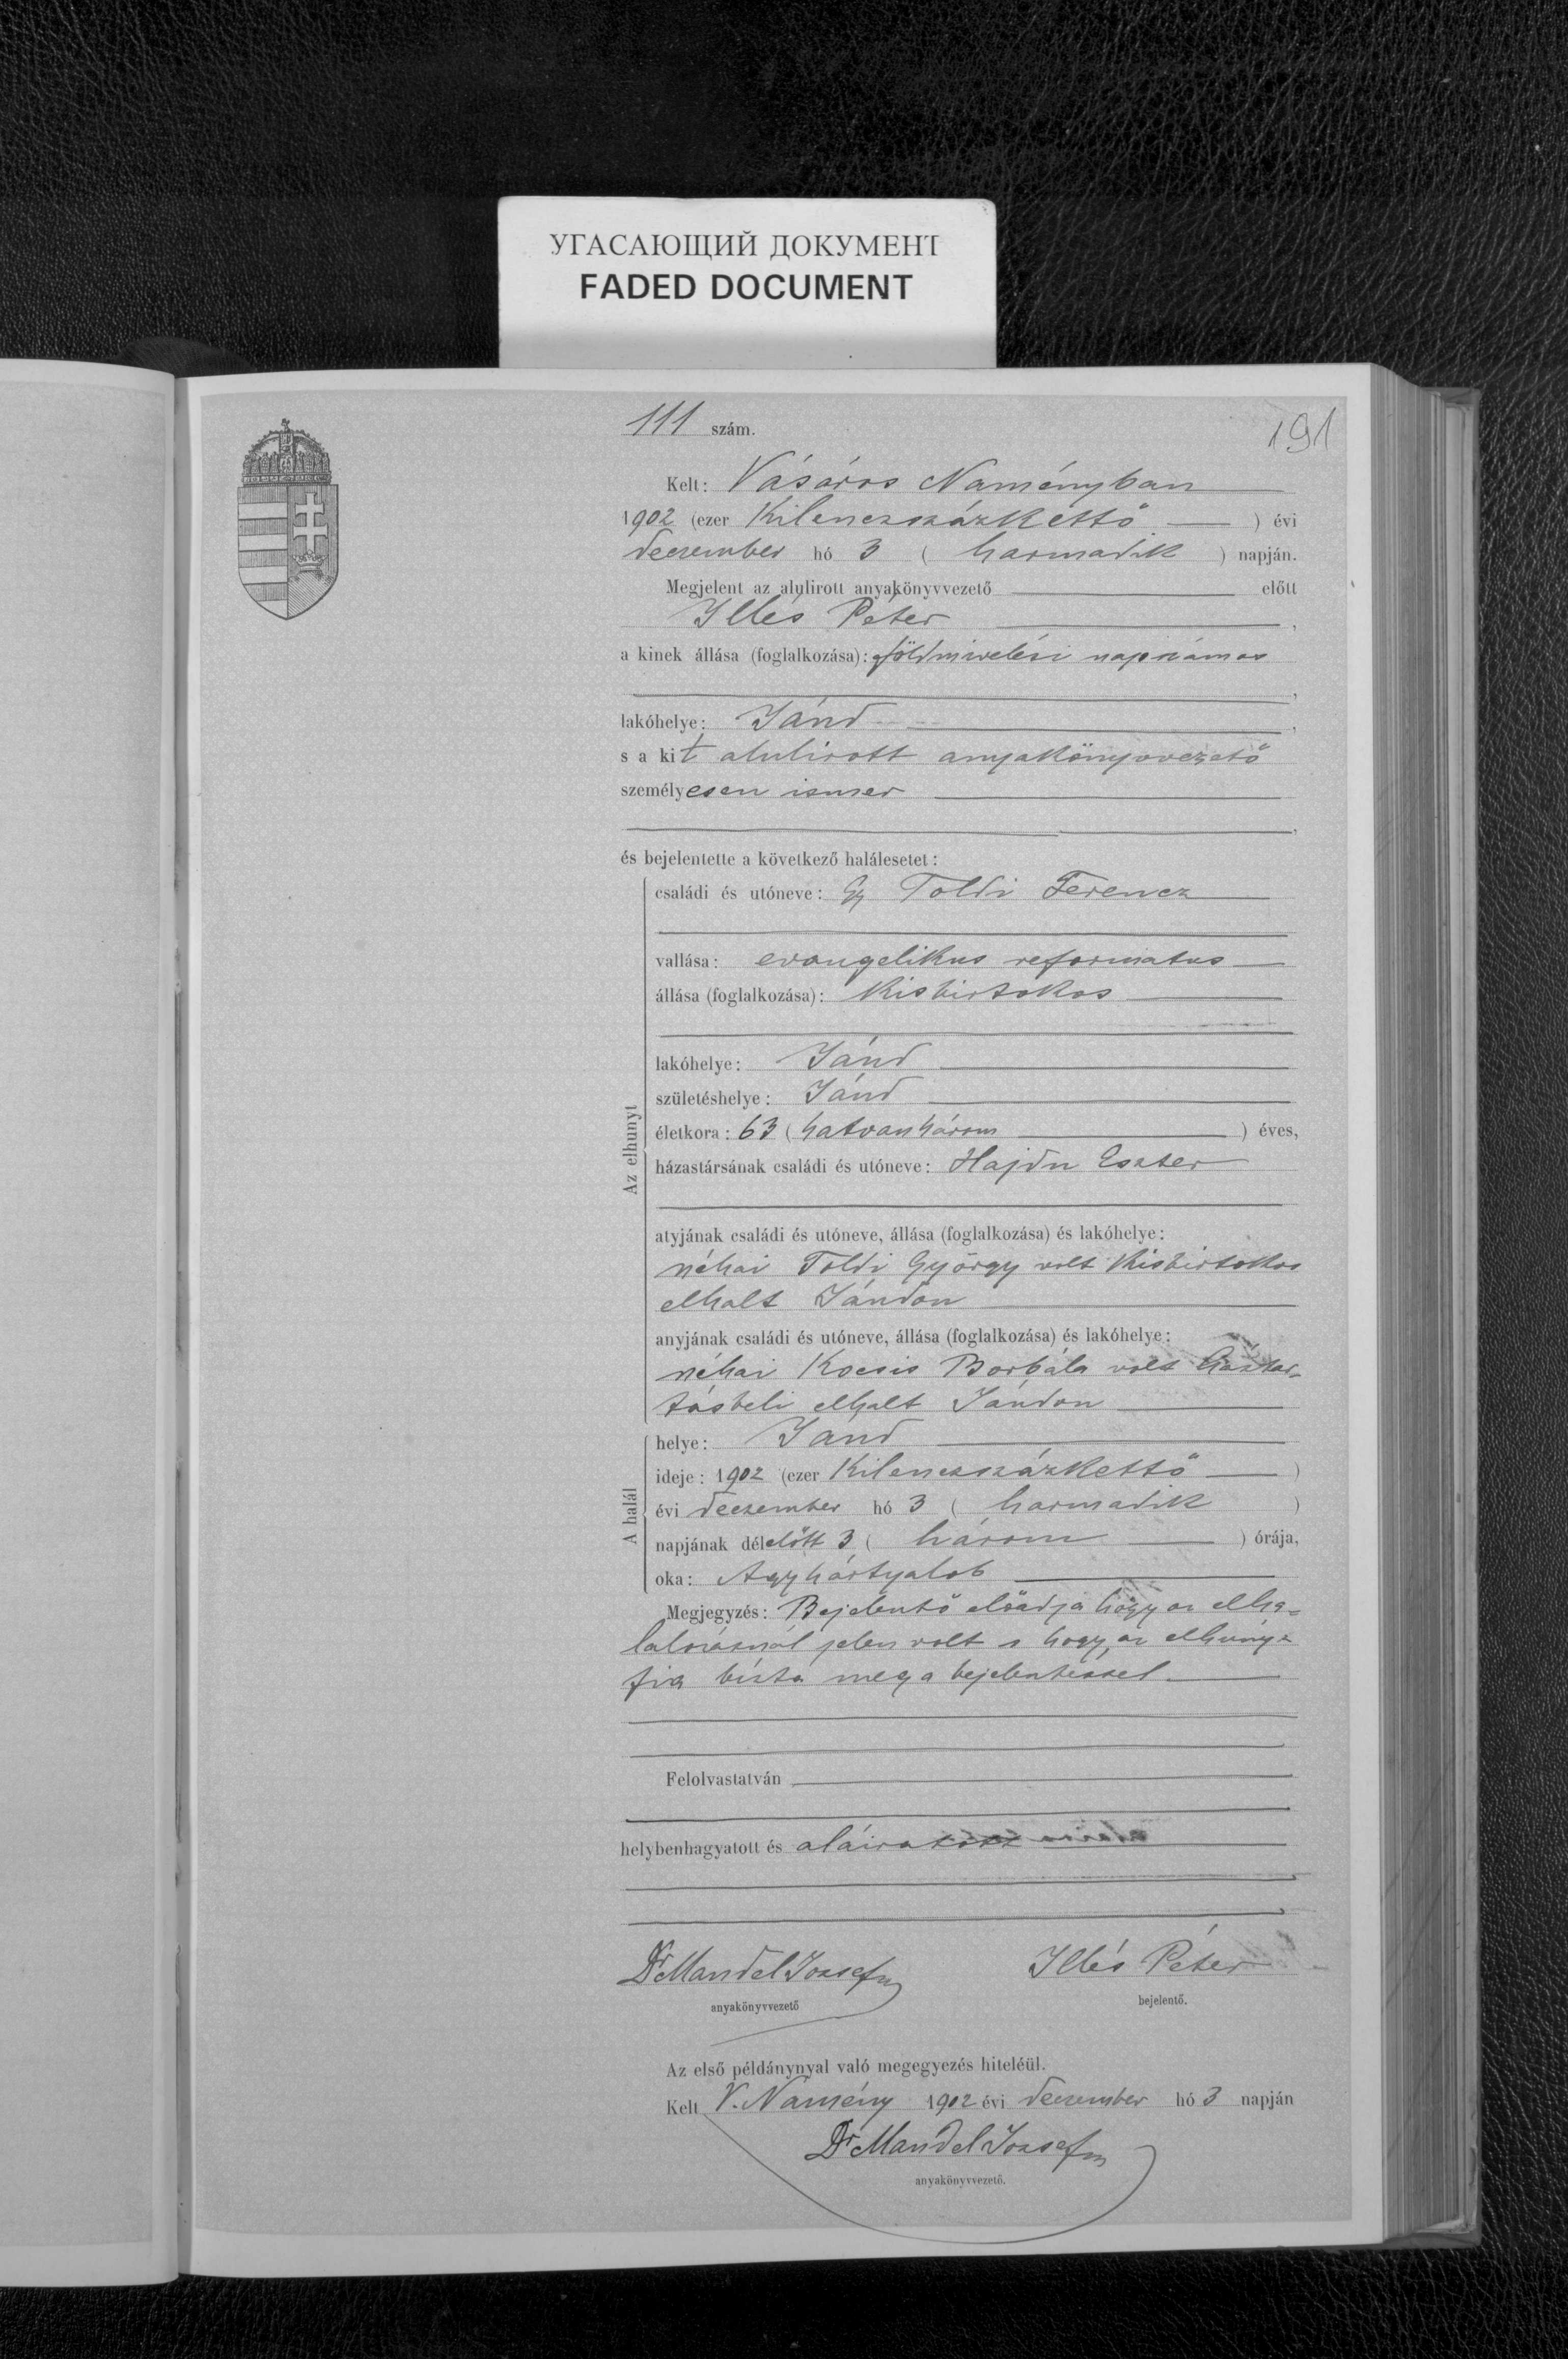 УГАСАЮЩИЙ ДОКУМЕНТ
FADED DOCUMENT
111 szám.
191
Kelt: Vásáros Naményban
1902 (ezer kilenczszázkettő ) évi
deczember hó 3 ( harmadik ) napján.
Megjelent az alulirott anyakönyvvezető előtt
Illés Péter ,
a kinek állása (foglalkozása): földmivelési napszámos
,
lakóhelye: Jánd ,
s a kit alulirott anyakönyvvezető
személyesen ismer
,
és bejelentette a következő halálesetet:
Az elhunyt
családi és utóneve: Toldi Ferencz
vallása: evangelikus reformatus
állása (foglalkozása): kisbirtokos
lakóhelye: Jánd
születéshelye: Jánd
életkora: 63 (hatvanhárom ) éves,
házastársának családi és utóneve: Hajdu Eszter
atyjának családi és utóneve, állása (foglalkozása) és lakóhelye:
néhai Toldi György volt kisbirtokos
elhalt Jándon
anyjának családi és utóneve, állása (foglalkozása) és lakóhelye:
néhai Kocsis Borbála volt háztar-
tásbeli elhalt Jándon
A halál
helye: Jánd
ideje: 1902 (ezer kilenczszázkettő )
évi deczember hó 3 ( harmadik )
napjának délelőtt 3 ( három ) órája,
oka: Agyhártyalob
Megjegyzés: Bejelentő előadja hogy az elha-
lálozásnál jelen volt s hogy az elhunyt
fia bízta meg a bejelentéssel
Felolvastatván
helybenhagyatott és aláiratott
Dr Mandel József
anyakönyvvezető
Illés Péter
bejelentő.
Az első példánynyal való megegyezés hiteléül.
Kelt V. Namény 1902 évi deczember hó 3 napján
Dr Mandel József
anyakönyvvezető.